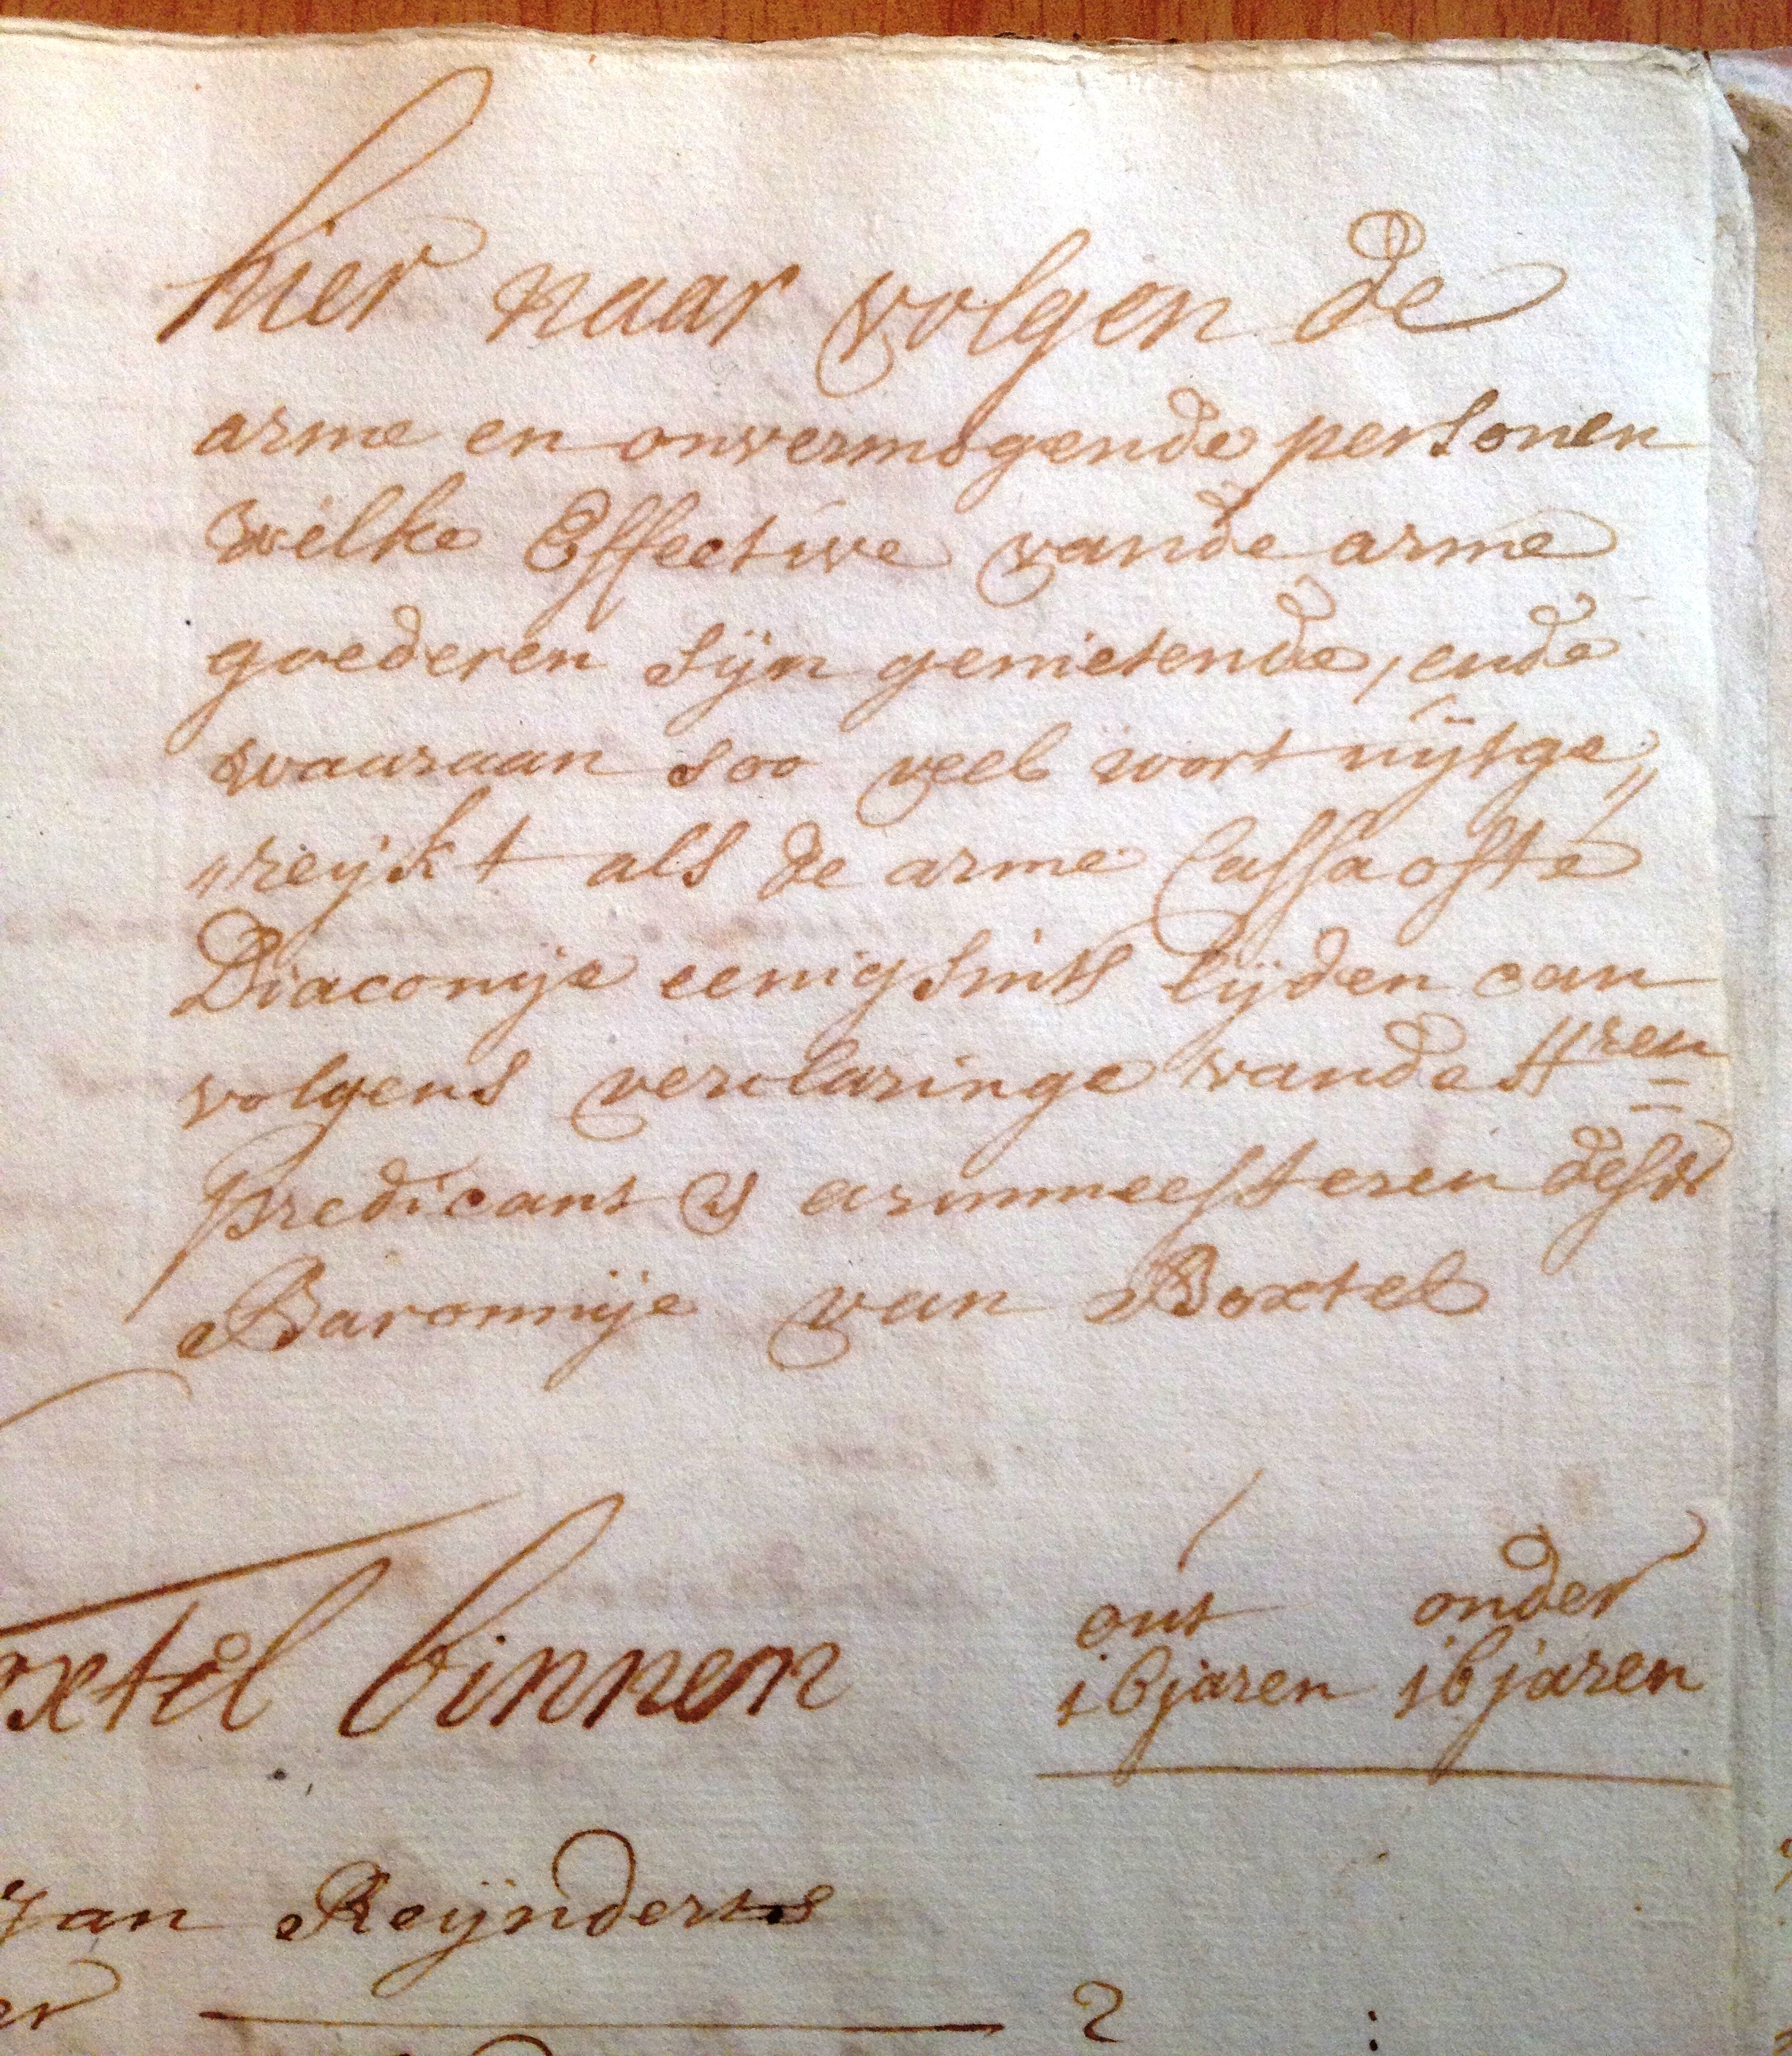 hier naar volgen de
arme en onvermogende personen
welke Effective vande arme
goederen sijn genietende, ende
waaraan soo veel wort uijtge„
„reijkt als de arme Cassa ofte
Diaconije eenigsints lijden can
volgens verclaringe vande Hren
Predicant & armmeesteren deser
Baronnije van Boxtel
oxtel binnen
out onder
16 jaren 16 jaren
Jan Reijnders
er 2 :